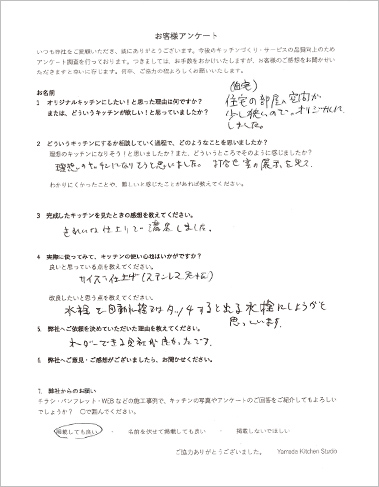 お客様アンケート
いつも弊社をご愛顧いただき、誠にありがとうございます。今後のキッチンづくり・サービスの品質向上のため
アンケート調査を行っております。つきましては、お手数をおかけいたしますが、お客様のご感想をお聞かせい
ただきますと幸いに存じます。何卒、ご協力の程よろしくお願いいたします。
お名前
(住宅)
1 オリジナルキッチンにしたい！と思った理由は何ですか？
または、どういうキッチンが欲しい！と思っていましたか？
住宅の部屋の空間が
少し狭いので。オリジナルに
しました。
2 どういうキッチンにするか相談していく過程で、どのようなことを思いましたか？
理想のキッチンになりそう！と思いましたか？また、どういうところでそのように感じましたか？
理想のキッチンになりそうと思いました。打合せ室の展示を見て.
わかりにくかったことや、難しいと感じたことがあれば教えてください。
3 完成したキッチンを見たときの感想を教えてください。
きれいな仕上りで満足しました。
4 実際に使ってみて、キッチンの使い心地はいかがですか？
良いと思っている点を教えてください。
サイズ、仕上げ(ステンレス
改良したいと思う点を教えてください。
水栓を自動水栓又はタッチすると出る水栓にしようかと
思っています.
5 弊社へご依頼を決めていただいた理由を教えてください。
できる会社が
6 弊社へご意見・ご感想がございましたら、お聞かせください。
7. 弊社からのお願い
チラシ・パンフレット・WEBなどの施工事例で、キッチンの写真やアンケートのご回答をご紹介してもよろしい
でしょうか？ ○で囲んでください。
掲載しても良い ・ 名前を伏せて掲載しても良い ・ 掲載しないでほしい
ご協力ありがとうございました。 Yamada Kitchen Studio